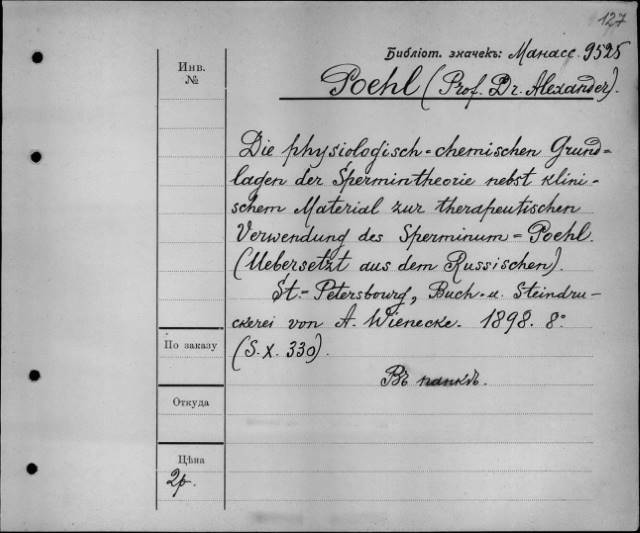 127
Библіот. значекъ: Манасс. 9525
Инв.
№
Poehl (Prof. Dr. Alexander).
Die physiologisch=chemischen Grund=
lagen der Spermintheorie nebst klini-
schem Material zur therapeutischen
Verwendung des Sperminum=Poehl.
(Uebersetzt aus dem Russischen).
St.-Petersbourg, Buch- u. Steindru-
ckerei von A. Wienecke. 1898. 8°
(S. X. 330).
Въ папкѣ.
По заказу
Откуда
Цѣна
2р.